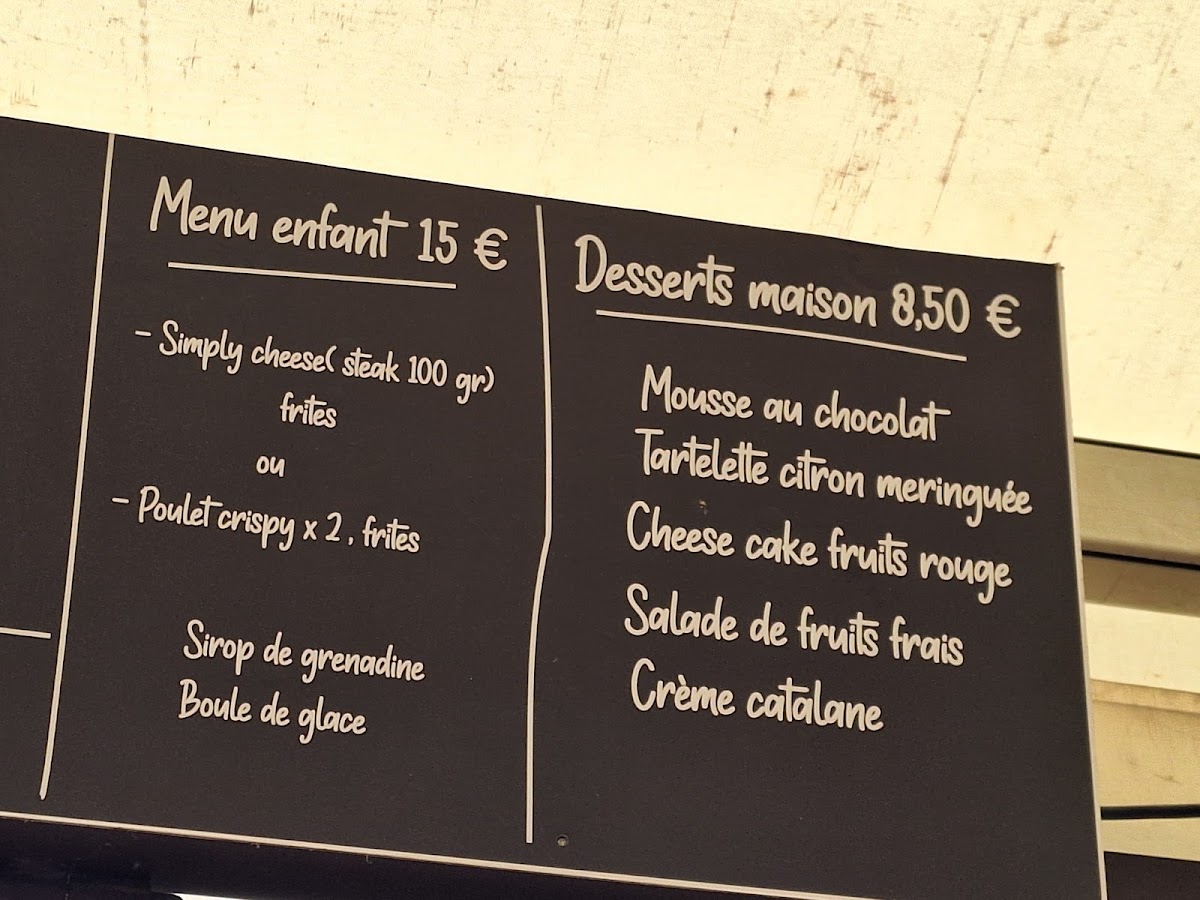 Menu enfant 15 €
- Simply cheese( steak 100 gr)
frites
ou
- Poulet crispy x 2 , frites
Sirop de grenadine
Boule de glace
Desserts maison 8,50 €
Mousse au chocolat
Tartelette citron meringuée
Cheese cake fruits rouge
Salade de fruits frais
Crème catalane